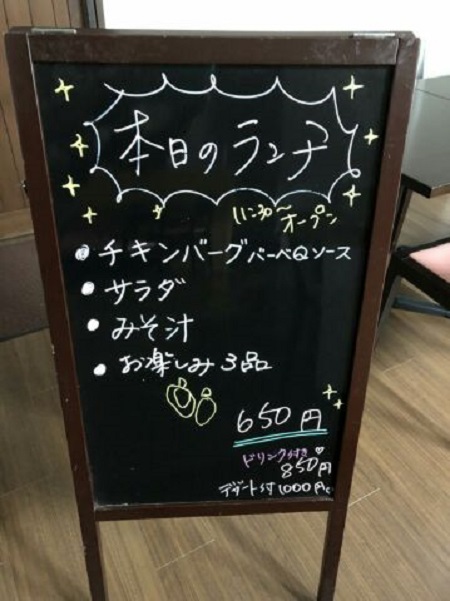 本日のランチ
11:30〜オープン
・チキンバーグバーベQソース
・サラダ
・みそ汁
・お楽しみ3品
650円
ドリンク付き
850円
デザート付1000円